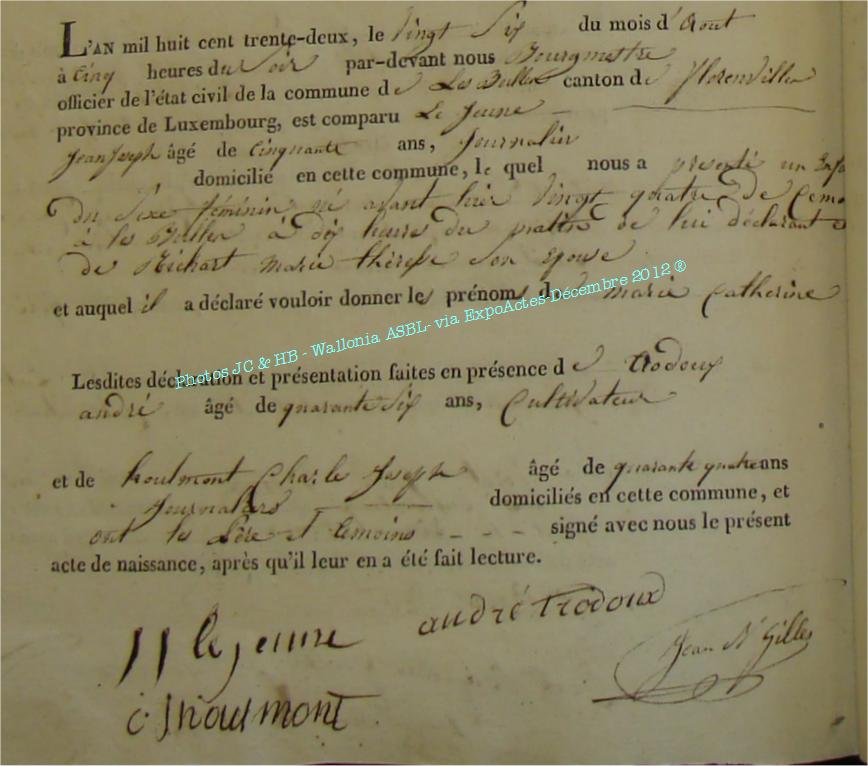 L'AN mil huit cent trente-deux, le vingt six du mois d'Aout
à cinq heures du soir par-devant nous Bourgmestre
officier de l'état civil de la commune de Les Bulles canton de florenville
province de Luxembourg, est comparu Le Jeune
Jean Joseph âgé de cinquante ans, Journalier
domicilié en cette commune, le quel nous a presenté un Enfa
du Sexe féminin né avant hier vingt quatre de ce mo
à les Bulles à dix heures du matin de lui déclarant e
de Richart marie thérese son epouse
et auquel il a déclaré vouloir donner les prénoms de marie Catherine
Photos JC & HB - Wallonia ASBL- via ExpoActes Décembre 2012 ®
Lesdites déclaration et présentation faites en présence de trodoux
andré âgé de quarante six ans, Cultivateur
et de Charle Joseph âgé de quarante quatre ans
Journaliers domiciliés en cette commune, et
ont les Père et temoins signé avec nous le présent
acte de naissance, après qu'il leur en a été fait lecture.
JJ le jeunne andré trodoux
Jean N Gilles